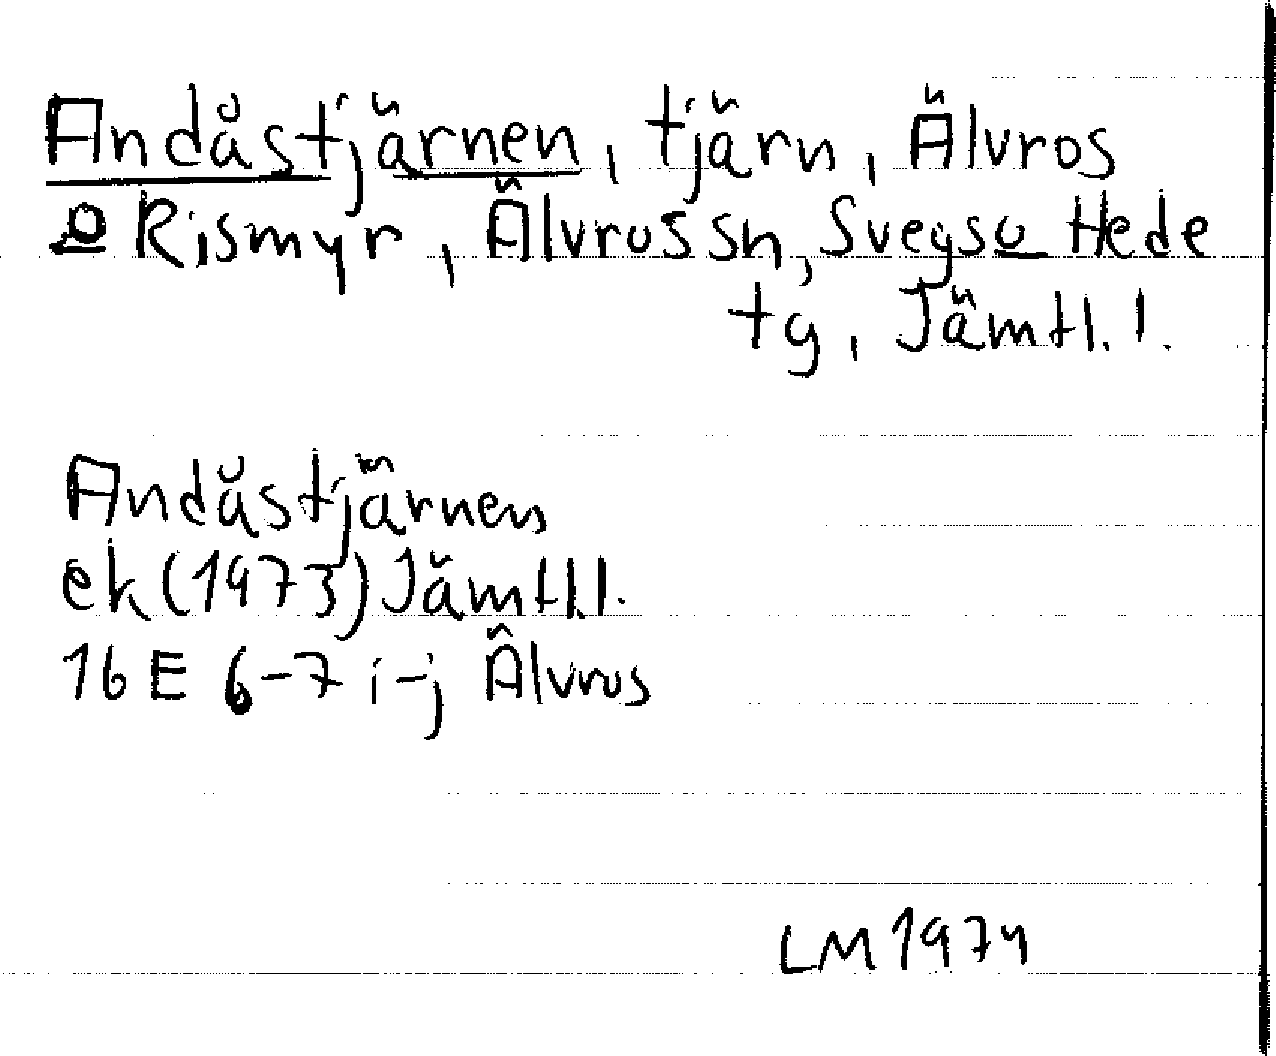 Andåstjärnen, tjärn, Älvros
o Rismyr, Älvros sn, Svegs o Hede
tg, Jämtl. l.
Andåstjärnen
ek (1973) Jämtl.l.
16 E 6-7 i-j Älvros
LM 1974